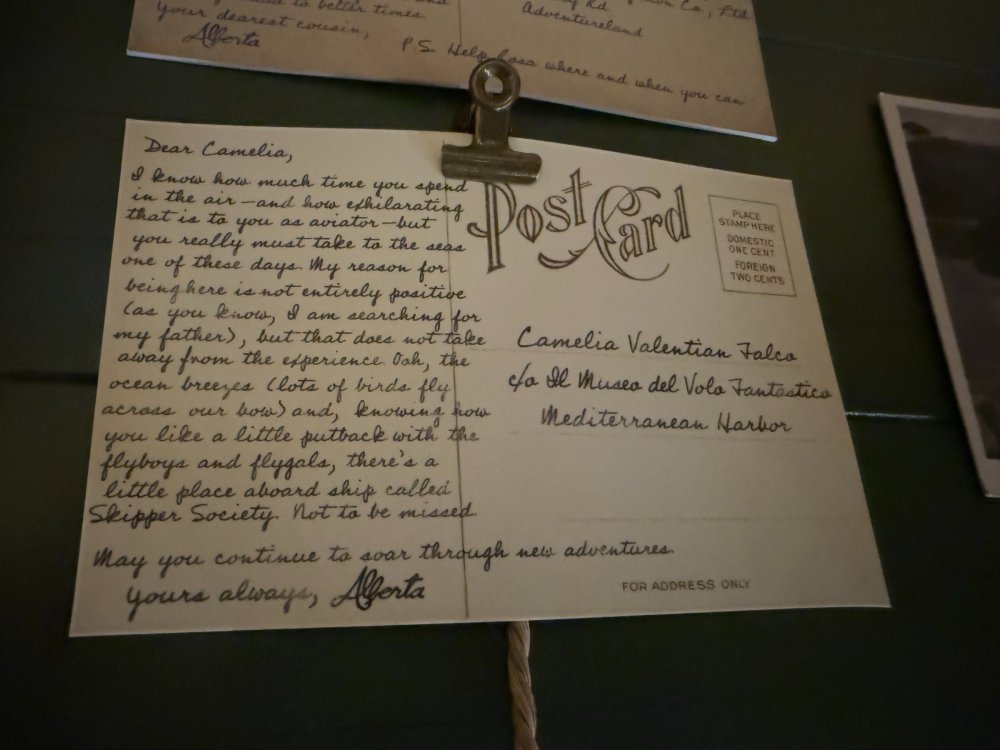 to better times.
your dearest cousin,
Alberta
P.S. Help Rosa where and when you can
Co., Ltd
Rd
Adventureland
Dear Camelia,
I know how much time you spend
in the air—and how exhilarating
that is to you as aviator—but
you really must take to the seas
one of these days. My reason for
being here is not entirely positive
(as you know, I am searching for
my father), but that does not take
away from the experience. Ooh, the
ocean breezes (lots of birds fly
across our bow) and, knowing how
you like a little putback with the
flyboys and flygals, there's a
little place aboard ship called
Skipper Society. Not to be missed.
May you continue to soar through new adventures.
yours always, Alberta
Post Card
PLACE
STAMP HERE
DOMESTIC
ONE CENT
FOREIGN
TWO CENTS
Camelia Valentian Falco
c/o Il Museo del Volo Fantastico
Mediterranean Harbor
FOR ADDRESS ONLY